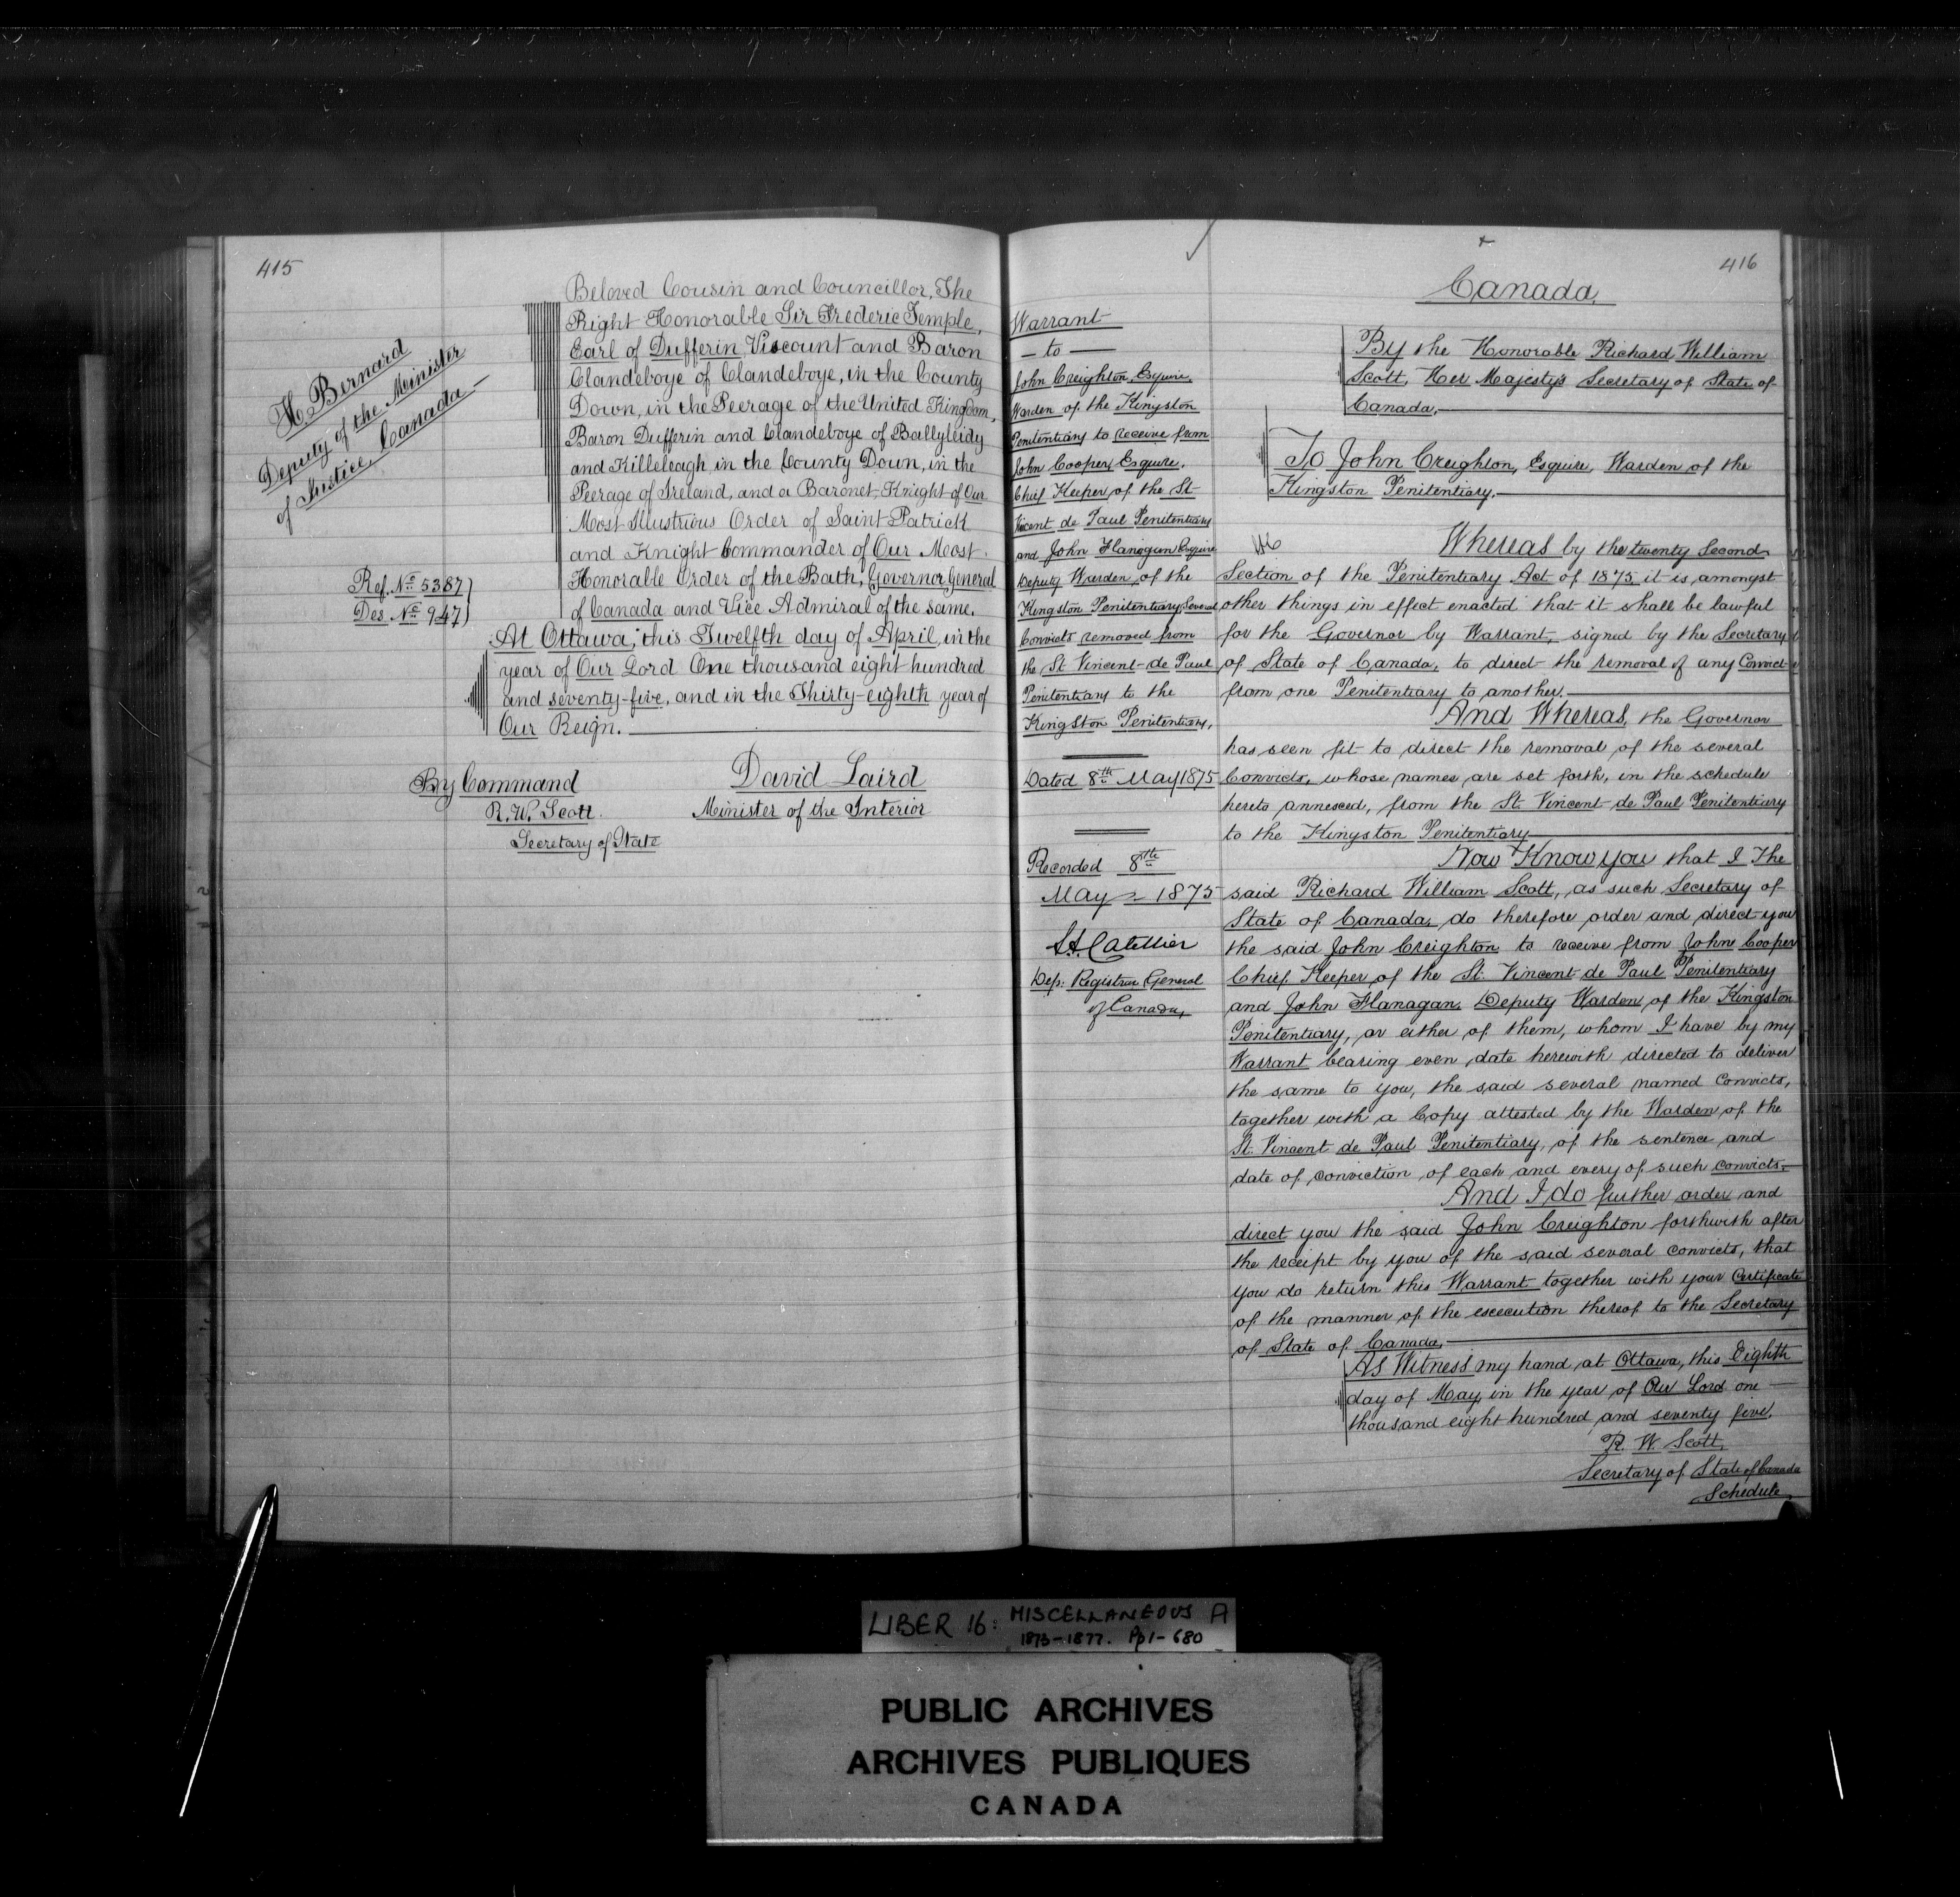 415
H. Bernard
Deputy of the Minister
of Justice, Canada
Ref. No 5387
Des. No 947
Beloved Cousin and Councillor, The
Right Honorable Sir Frederic Temple,
Earl of Dufferin, Viscount and Baron
Clandeboye of Clandeboye, in the County
Down, in the Peerage of the United Kingdom,
Baron Dufferin and Clandeboye of Ballyleidy
and Killeleagh in the County Down, in the
Peerage of Ireland, and a Baronet, Knight of Our
Most Illustrious Order of Saint Patrick
and Knight Commander of Our Most
Honorable Order of the Bath, Governor General
of Canada and Vice Admiral of the same.
At Ottawa, this Twelfth day of April, in the
year of Our Lord One thousand eight hundred
and seventy-five, and in the Thirty-eighth year of
Our Reign.
By Command
R. W. Scott.
Secretary of State
David Laird
Minister of the Interior
416
Warrant
— to —
John Creighton, Esquire,
Warden of the Kingston
Penitentiary to receive from
John Cooper, Esquire,
Chief Keeper of the St
Vincent de Paul Penitentiary
and John Flanagan Esquire
Deputy Warden of the
Kingston Penitentiary, Several
Convicts removed from
the St Vincent de Paul
Penitentiary to the
Kingston Penitentiary,
Dated 8th May 1875
Recorded 8th
May 1875
L. A. Catellier
Dep: Registrar General
of Canada,
Canada,
By the Honorable Richard William
Scott, Her Majesty's Secretary of State of
Canada,
To John Creighton, Esquire, Warden of the
Kingston Penitentiary.
Whereas by the twenty Second
Section of the Penitentiary Act of 1875 it is amongst
other things in effect enacted that it shall be lawful
for the Governor by Warrant, signed by the Secretary
of State of Canada, to direct the removal of any Convict
from one Penitentiary to another.
And Whereas, the Governor
has seen fit to direct the removal of the several
Convicts, whose names are set forth, in the schedule
hereto annexed, from the St. Vincent de Paul Penitentiary
to the Kingston Penitentiary
Now Know you that I The
said Richard William Scott, as such Secretary of
State of Canada, do therefore order and direct you
the said John Creighton to receive from John Cooper
Chief Keeper of the St. Vincent de Paul Penitentiary
and John Flanagan, Deputy Warden of the Kingston
Penitentiary, or either of them, whom I have by my
Warrant bearing even date herewith directed to deliver
the same to you, the said several named convicts,
together with a Copy attested by the Warden of the
St. Vincent de Paul Penitentiary, of the sentence and
date of conviction of each and every of such convicts.
And I do further order and
direct you the said John Creighton forthwith after
the receipt by you of the said several convicts, that
you do return this Warrant together with your Certificate
of the manner of the execution thereof to the Secretary
of State of Canada.
As Witness my hand at Ottawa, this Eighth
day of May in the year of Our Lord one
thousand eight hundred and seventy five.
R. W. Scott,
Secretary of State of Canada
Schedule,
LIBER 16: MISCELLANEOUS A
1873-1877. Pp 1-680
PUBLIC ARCHIVES
ARCHIVES PUBLIQUES
CANADA